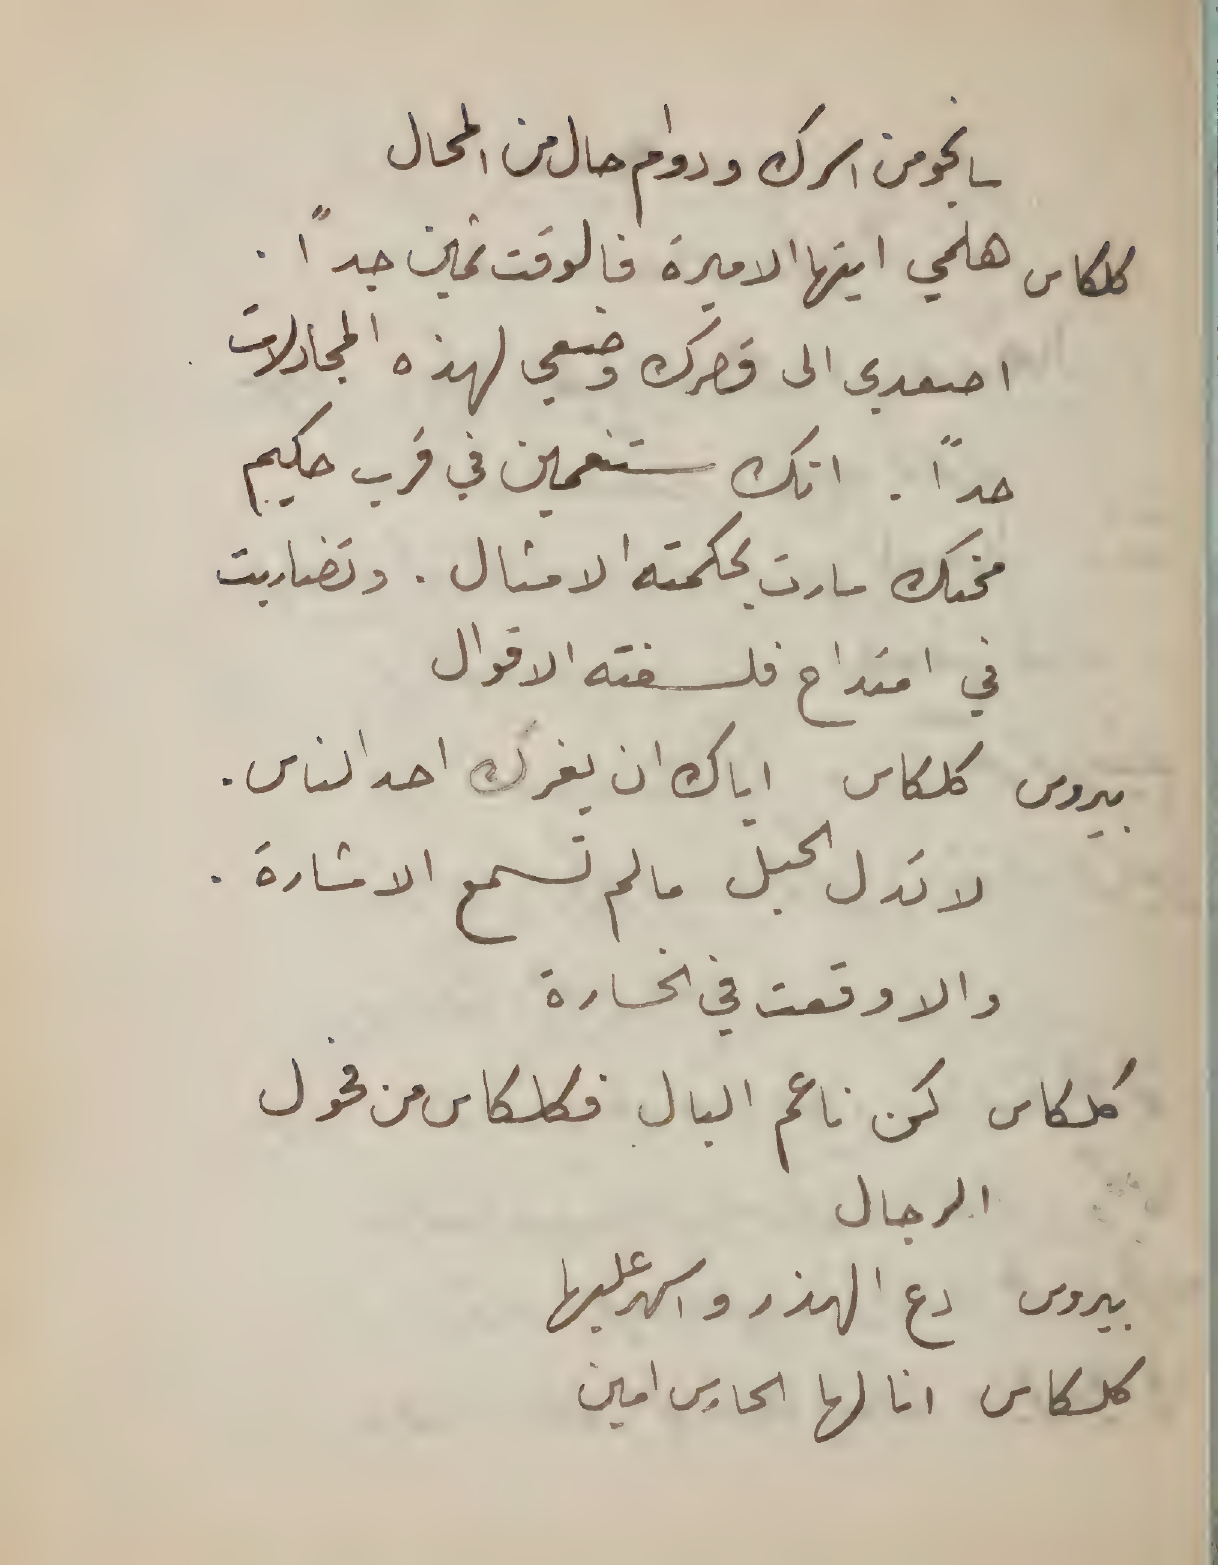 سانجو من اسرك ودوام حال من المحال
كلكاس هلمي ايتها الاميرة فالوقت ثمين جداً .
اصعدي الى قصرك وضعي لهذه المجادلات
حداً . انك ستنعمين في قرب حكيم
محنك سارت بحكمته الامثال . وتضاربت
في امتداح فلسفته الاقوال
بيروس كلكاس اياك ان يغرك احد الناس .
لا تدل الحبل مالم تسمع الاشارة .
والا وقعت في الخسارة
كلكاس كن ناعم البال فكلكاس من فحول
الرجال
بيروس دع الهذر واسهر عليها
كلكاس انا لها الحارس امين